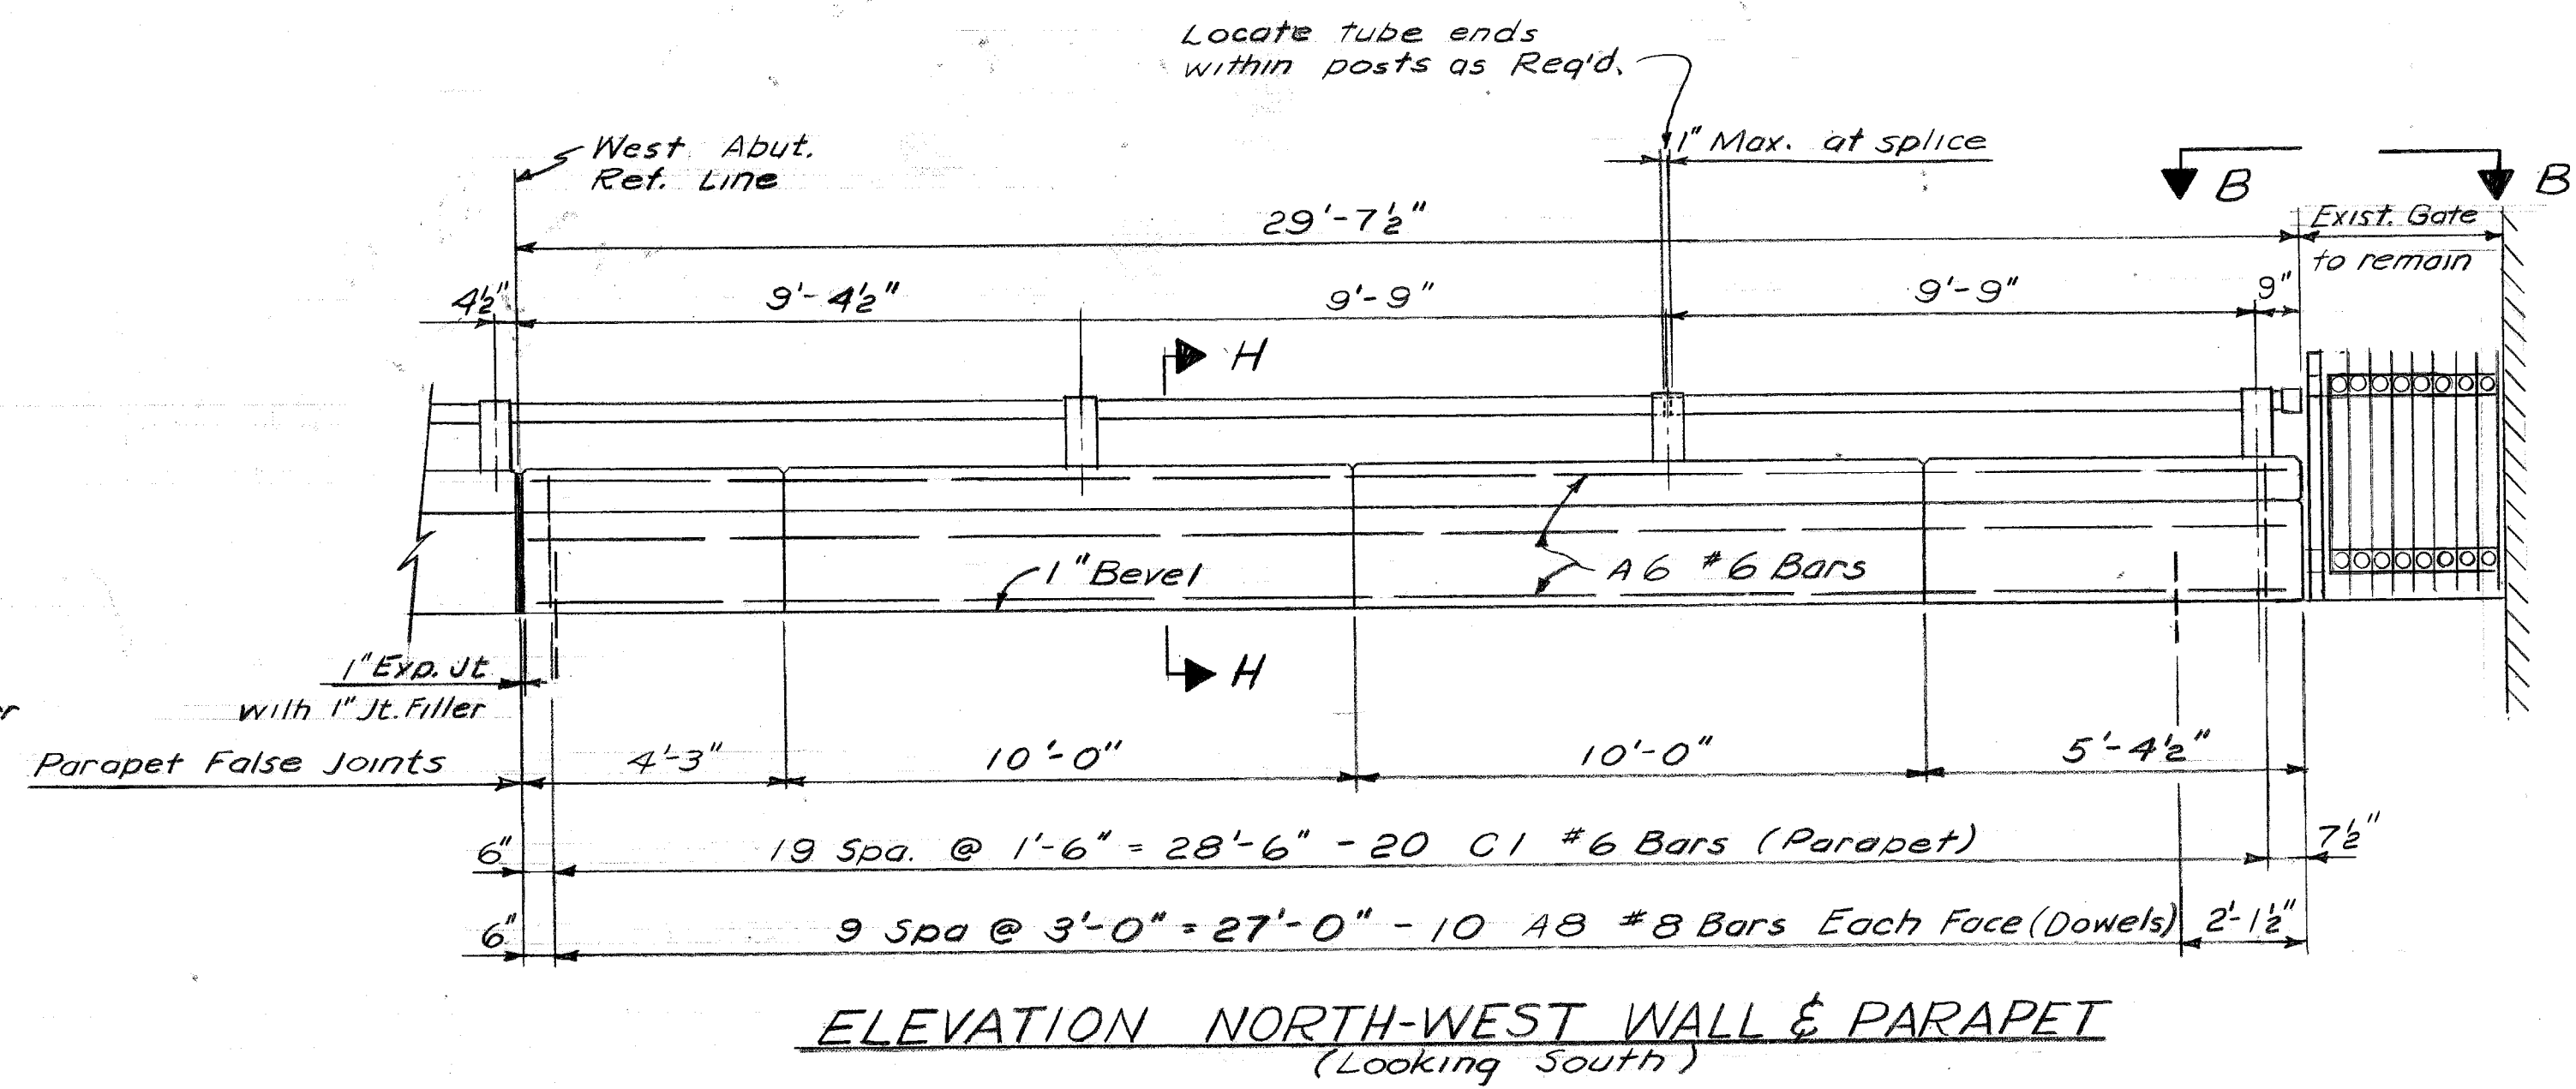 Locate tube ends
within posts as Req'd.
West Abut.
Ref. Line
1" Max. at splice
B
B
29'-7½"
Exist. Gate
to remain
4½"
9'-4½"
9'-9"
9'-9"
9"
H
1" Bevel
A6 #6 Bars
1" Exp. Jt.
with 1" Jt. Filler
H
Parapet False Joints
4'-3"
10'-0"
10'-0"
5'-4½"
6"
19 Spa. @ 1'-6" = 28'-6" - 20 C1 #6 Bars (Parapet)
7½"
6"
9 Spa @ 3'-0" = 27'-0" - 10 A8 #8 Bars Each Face (Dowels)
2'-1½"
ELEVATION NORTH-WEST WALL & PARAPET
(Looking South)